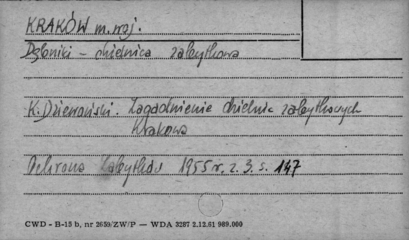 KRAKÓW m. woj.
Dębniki – dzielnica zabytkowa
K. Dziewoński. Zagadnienie dzielnic zabytkowych
Krakowa
Ochrona Zabytków 1955 r. z. 3. s. 147
CWD - B-15 b, nr 2659/ZW/P — WDA 3287 2.12.61 989.000